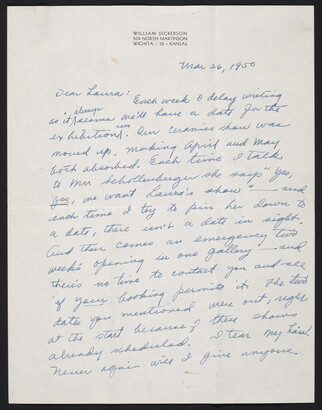 WILLIAM DICKERSON
509 NORTH MARTINSON
WICHITA - 12 - KANSAS
Mar 26, 1950
Dear Laura: Each week I delay writing
as it always seems we'll have a date for the
exhibitions soon. Our ceramics show was
moved up, making April and May
both absorbed. Each time I talk
to Mrs Schollenberger she says "Yes,
Yes, we want Laura's show" — and
each time I try to pin her down to
a date, there isn't a date in sight.
And then comes an emergency two
weeks' opening in one gallery — and
there's no time to contact you and see
if your booking permits it. The two
dates you mentioned were out, right
at the start because of these shows
already scheduled. I tear my hair!
Never again will I give anyone